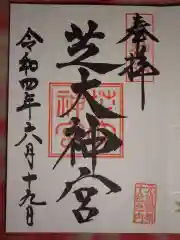 奉拝
芝大神宮
令和四年六月十九日